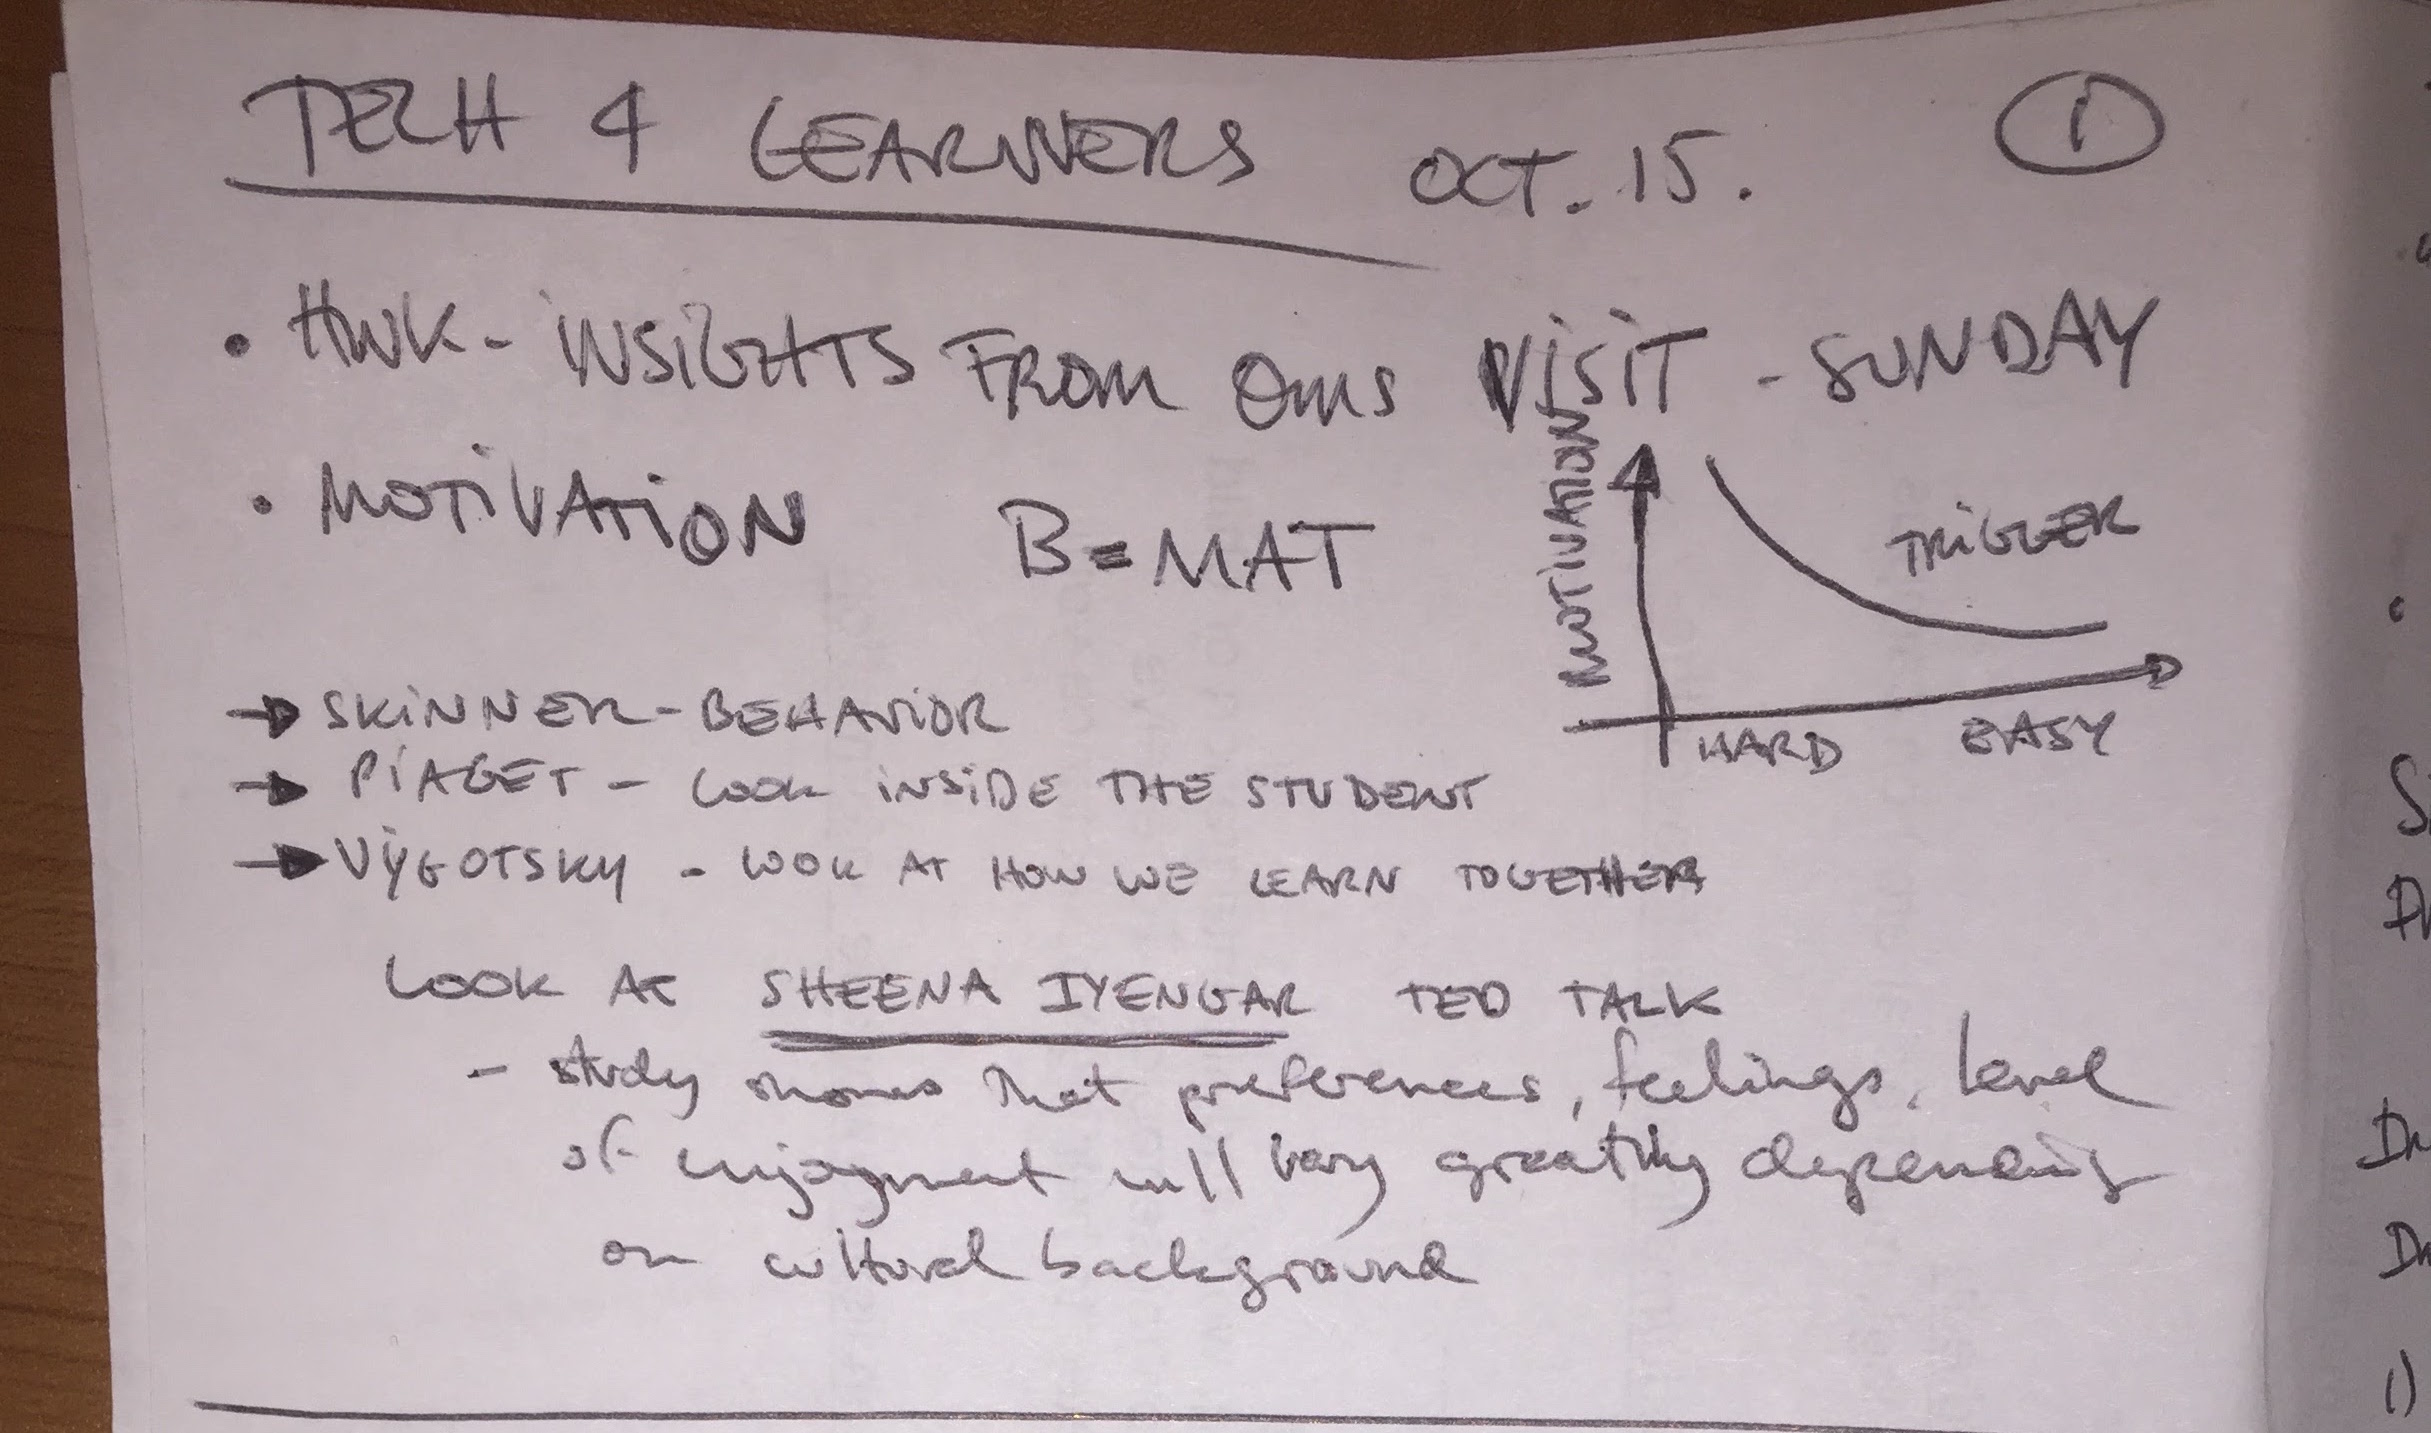 TECH 4 LEARNERS OCT. 15. 1
• HWK - INSIGHTS FROM OMS VISIT - SUNDAY
• MOTIVATION B = MAT
MOTIVATION
TRIGGER
HARD EASY
→ SKINNER - BEHAVIOR
→ PIAGET - LOOK INSIDE THE STUDENT
→ VYGOTSKY - LOOK AT HOW WE LEARN TOGETHER
LOOK AT SHEENA IYENGAR TED TALK
- study shows that preferences, feelings, level
of enjoyment will vary greatly depending
on cultural background